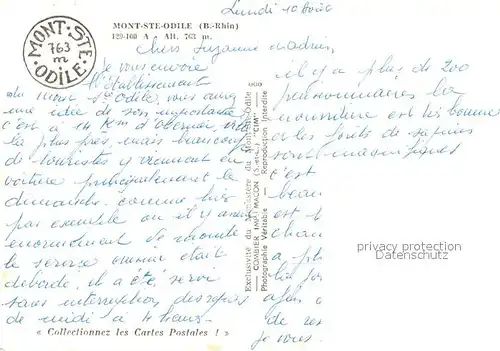 Lundi 10 Août
MONT-STE-ODILE (B.-Rhin)
129-160 A - Alt. 763 m.
MONT-STE-ODILE
763
m
Chers Suzanne
Je vous envoie
l'établissement
du Mont Ste Odile, vous
une idée de son importance
c'est à 14 Km d'Obernai,
la plus près, mais beaucoup
de touristes y viennent en
voiture principalement le
dimanche. comme hier
par exemple où il y avait
énormément de monde
le service était
débordé, il a été servi
sans interruption des repas
de midi à 4 heures
« Collectionnez les Cartes Postales ! »
Exclusivité du Monastère du Mont-Ste-Odile
COMBIER IMP. MACON (S.-et-L.) "CIM"
Photographie Véritable - Reproduction Interdite
il y a plus de 200
pensionnaires la
nourriture est très bonne
et les forêts de sapins
sont magnifiques
c'est
beau
est
a plu
de
je vous
privacy protection
watermark